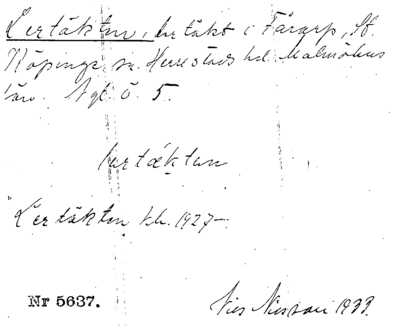 Lertäkten, lertäkt i Fårarp, St.
Köpinge sn. Herrestads hd. Malmöhus
län. Ägl. ö. 5.
lertäkten
"Lertäkten kh. 1927–
Nr 5637.
Nils Nilsson 1933.